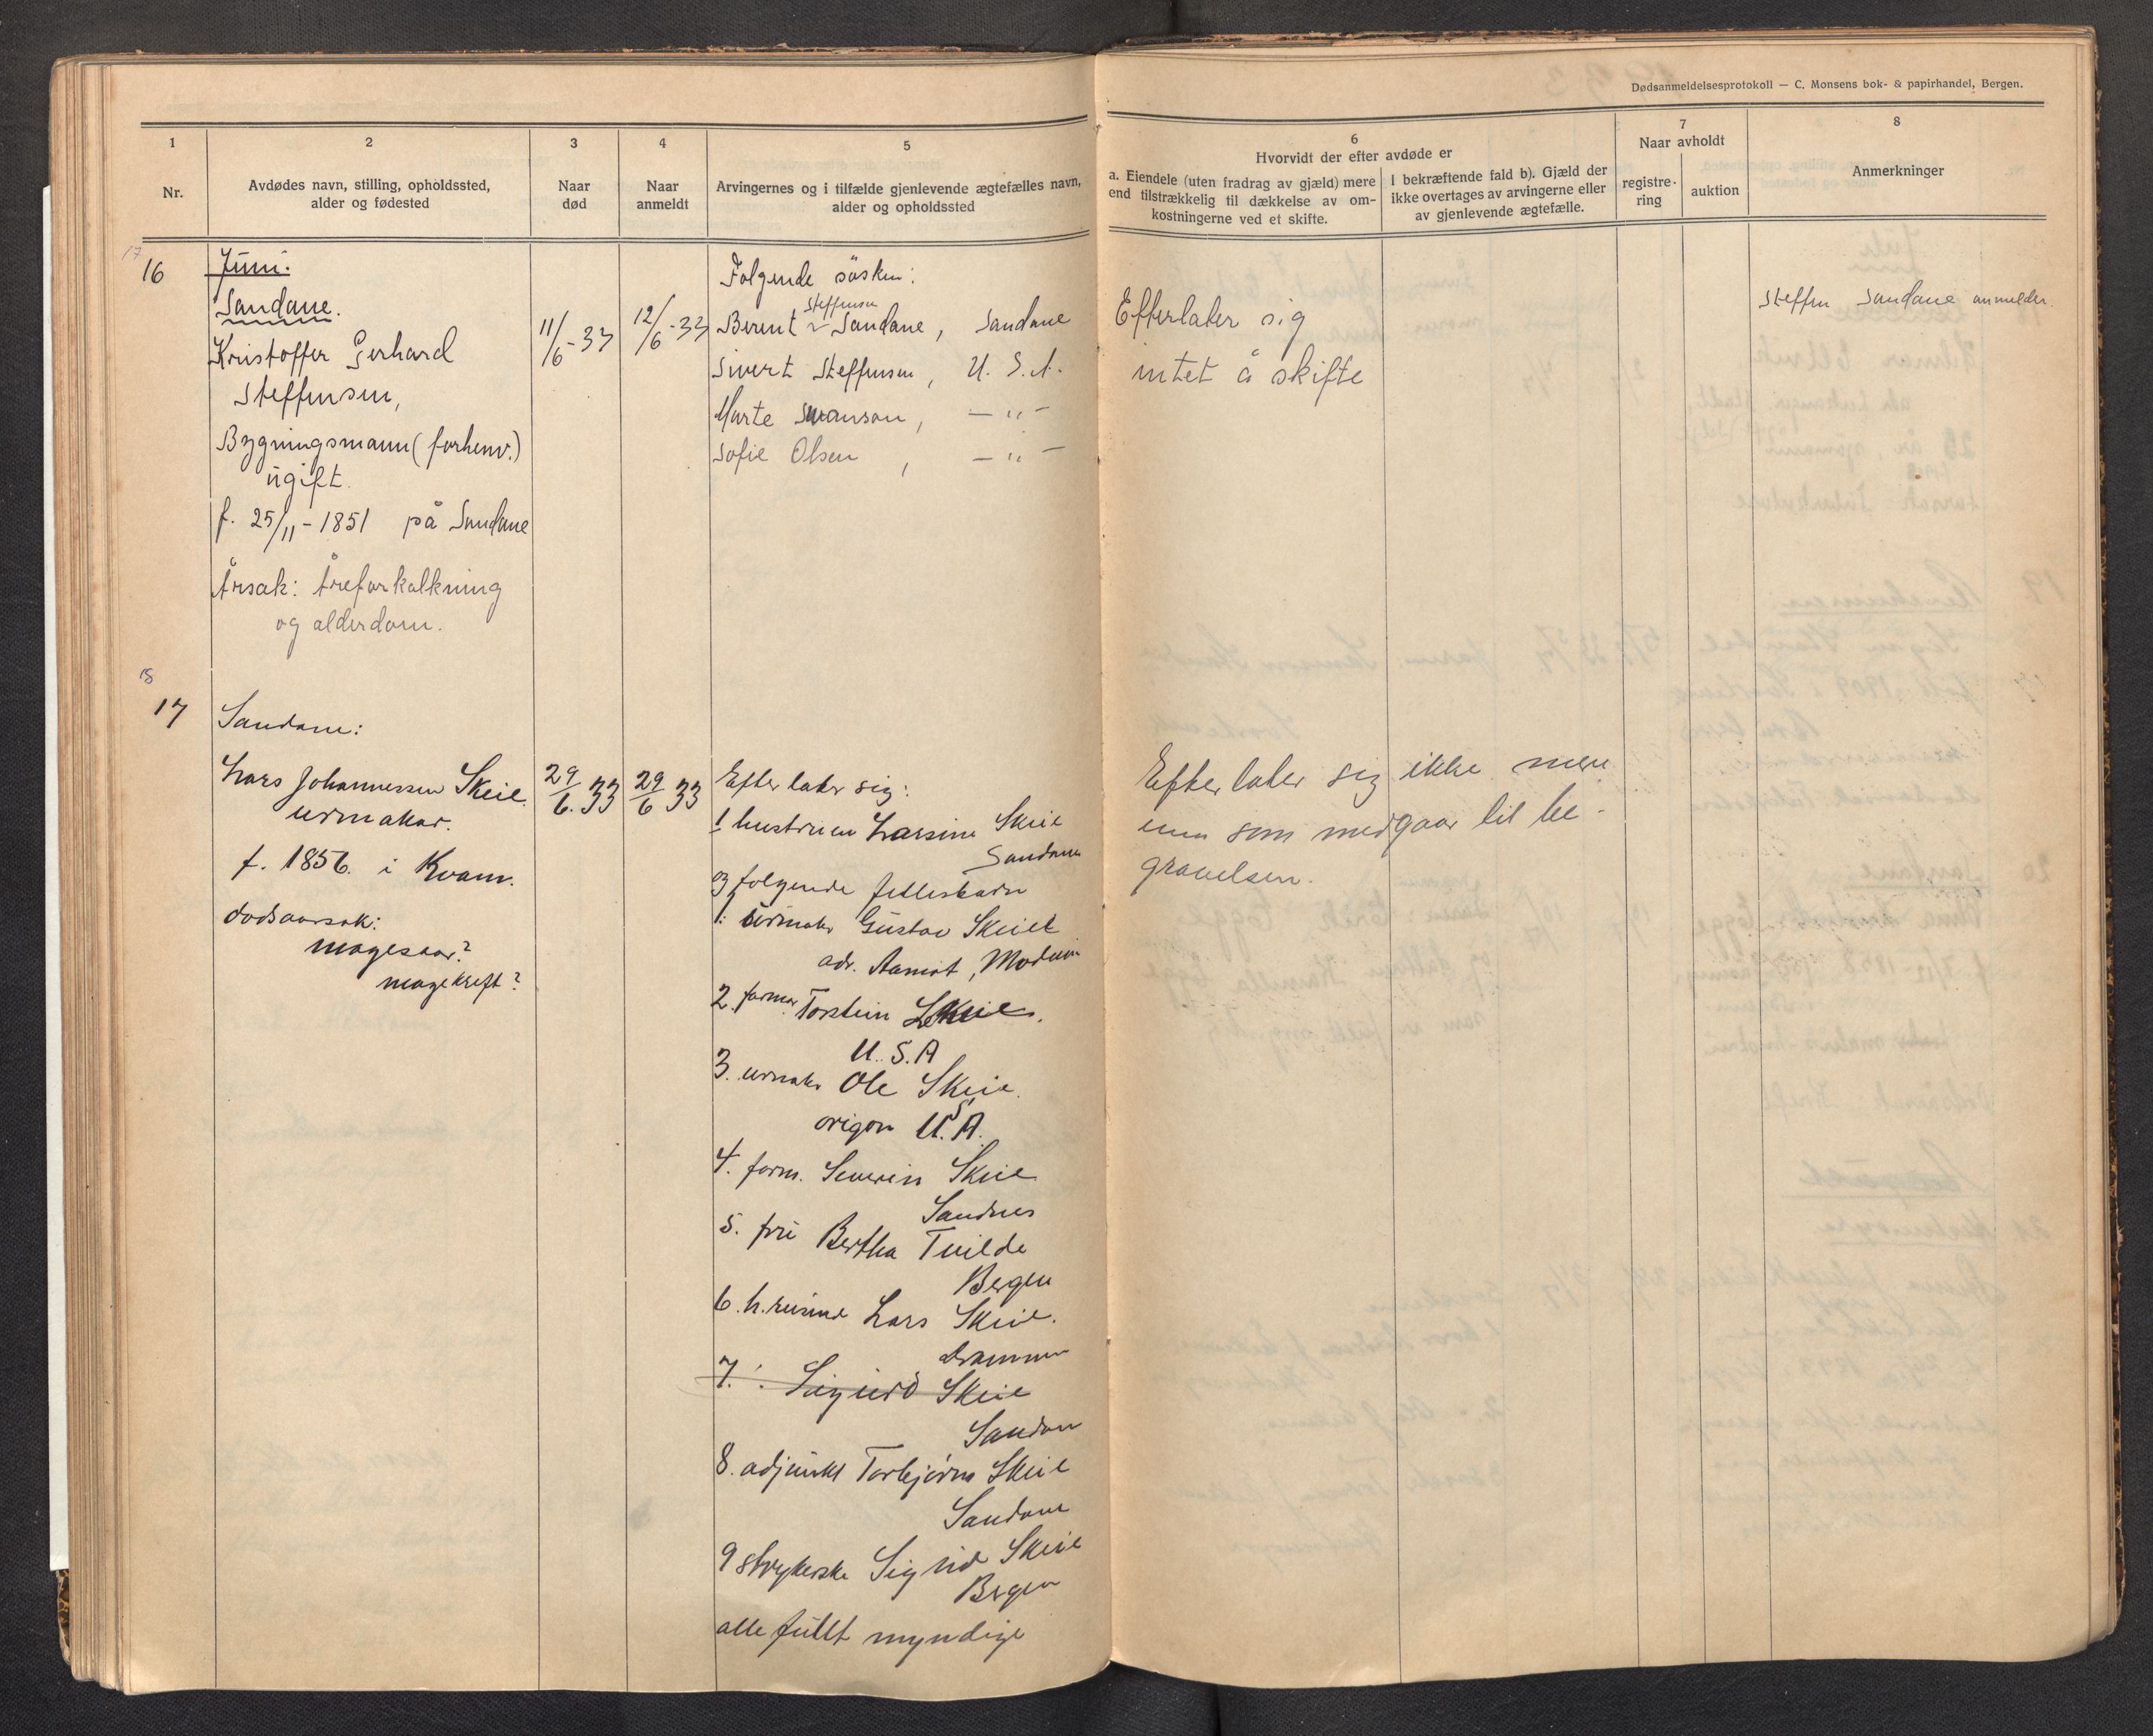 Dødsanmeldelsesprotokoll — C. Monsens bok- & papirhandel, Bergen.
1
Nr.
2
Avdødes navn, stilling, opholdssted,
alder og fødested
3
Naar
død
4
Naar
anmeldt
5
Arvingernes og i tilfælde gjenlevende ægtefælles navn,
alder og opholdssted
6
Hvorvidt der efter avdøde er
a. Eiendele (uten fradrag av gjæld) mere
end tilstrækkelig til dækkelse av om-
kostningerne ved et skifte.
I bekræftende fald b). Gjæld der
ikke overtages av arvingerne eller
av gjenlevende ægtefælle.
7
Naar avholdt
registre-
ring
auktion
8
Anmerkninger
17
16
Juni.
Sandane.
Kristoffer Gerhard
Steffensen,
Bygningsmann (forhenv.)
ugift.
f. 25/11 - 1851 på Sandane
Årsak: Åreforkalkning
og alderdom.
11/6 - 33
12/6 - 33
Følgende søsken:
Steffensen
Berent Sandane, Sandane
Sivert Steffensen, U. S. A.
Marte Swanson, — „ —
Sofie Olsen, — „ —
Efterlater sig
intet å skifte
Steffen Sandane anmelder.
18
17
Sandane:
Lars Johannessen Skeie
urmaker.
f. 1856. i Kvam.
dødsaarsak:
magesaar?
magekreft?
29/6. 33
29/6 33
Efterlater sig:
1 hustruen Larsine Skeie
Sandane
og følgende fellesbarn
1: urmaker Gustav Skeie
adr. Aamot, Modum
2. farmer Torstein Skeie.
U. S. A
3. urmaker Ole Skeie.
origon U.S.A.
4. form. Severin Skeie
Sandnes
5. fru Bertha Tvilde
Bergen
6. h. reisende Lars Skeie.
Drammen
7. Sigurd Skeie
Sandane
8. adjunkt Torbjørn Skeie
Sandane
9 strykerske Sigrid Skeie
Bergen
alle fullt myndige
Efterlater sig ikke mere
enn som medgaar til be-
gravelsen.